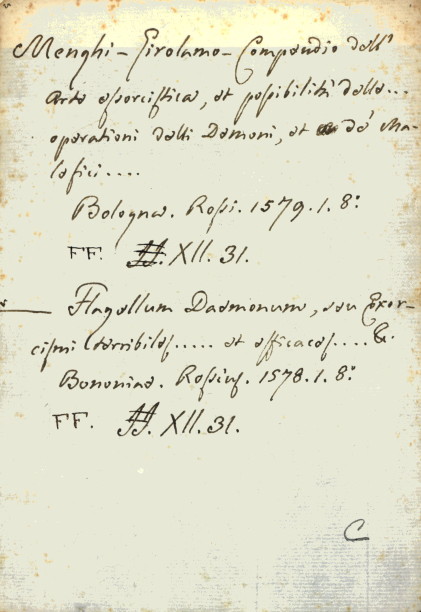 Menghi - Girolamo - Compendio dell'
Arte essorcistica, et possibilità delle...
operationi delli Demoni, et de' Ma-
lefici....
Bologna. Rossi. 1579. 1. 8:
FF. XII. 31.
— Flagellum Daemonum, seu Exor-
cismi terribiles..... et efficaces.... &.
Bononiae. Rossius. 1578. 1. 8:
FF. XII. 31.
C